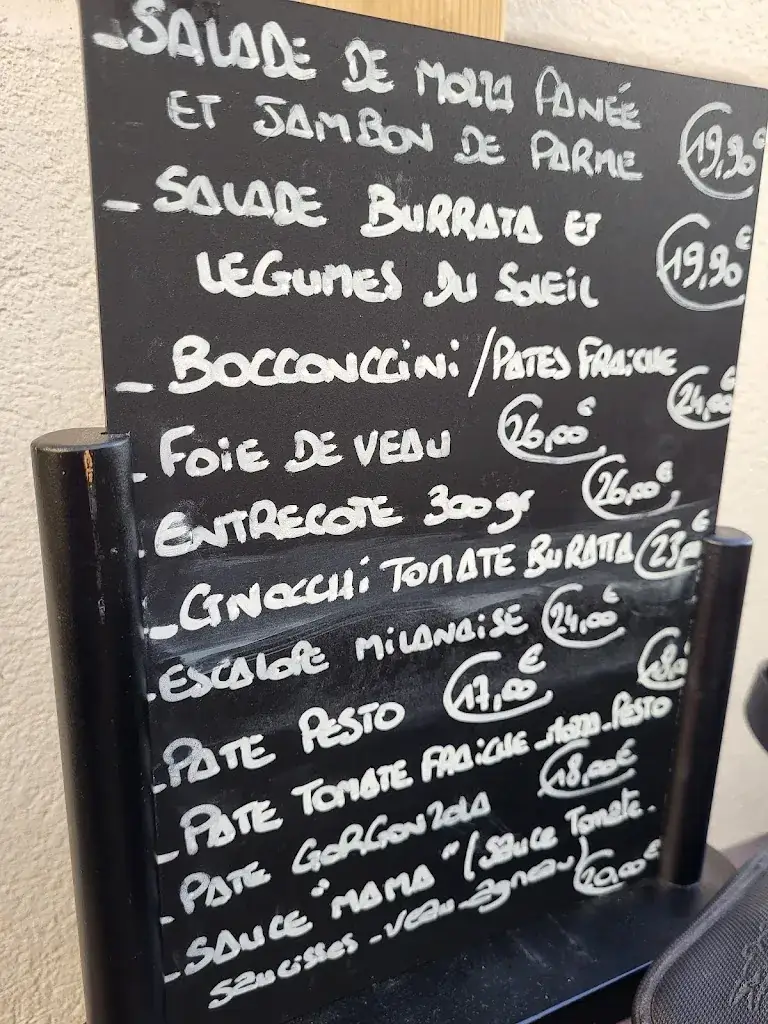 - SALADE DE MOZZA PANÉE
ET JAMBON DE PARME 19,90€
- SALADE BURRATA ET
LEGUMES DU SOLEIL 19,90€
- BOCCONCCINI / PATES FRAICHE 24,00€
- FOIE DE VEAU 26,00€
- ENTRECOTE 300gr 26,00€
- GNOCCHI TOMATE BURATTA 23,00€
- ESCALOPE MILANAISE 24,00€
- PATE PESTO 17,00€
- PATE TOMATE FRAICHE - MOZZA - PESTO
- PATE GORGONZOLA 18,00€
- SAUCE "MAMA" (SAUCE Tomate -
SAUCISSES - VEAU - Agneau) 20,00€